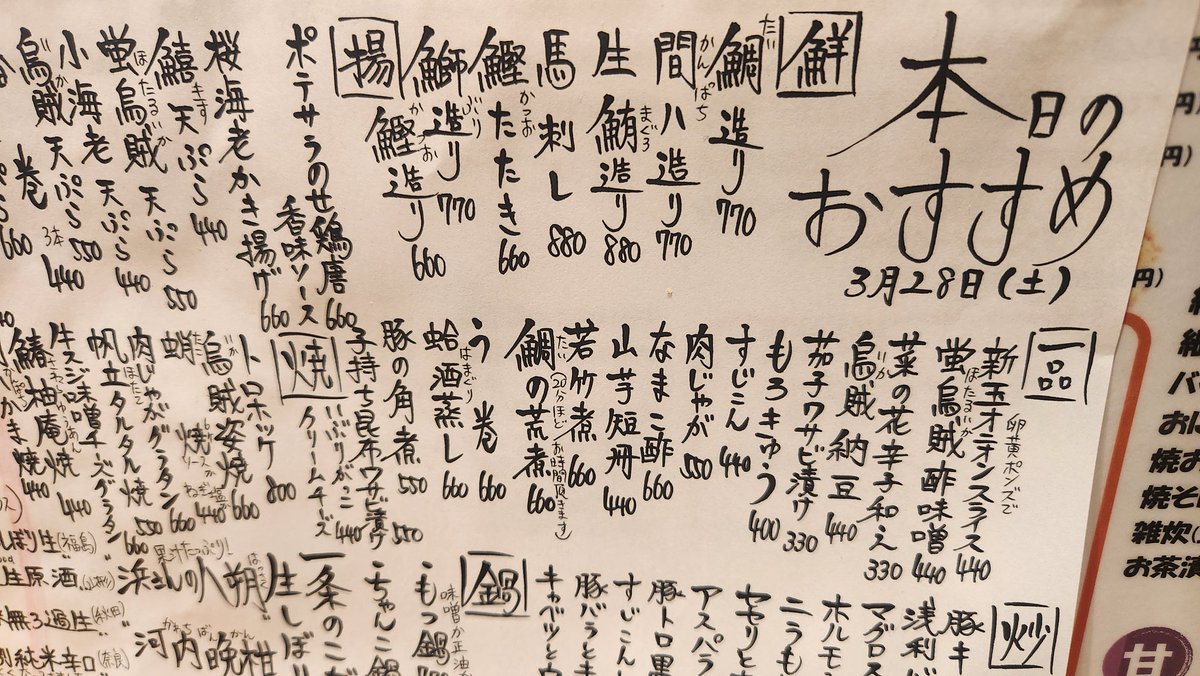 本日の
おすすめ
3月28日(土)
鮮
鯛造り 770
たい
間八造り 770
かんぱち
生鮪造り 880
まぐろ
馬刺し 880
鰹たたき 660
かつお
鰤造り 770
ぶり
鰹造り 660
かつお
揚
ポテサラのせ鶏唐 660
香味ソース
桜海老かき揚げ 660
鱚天ぷら 440
きす
蛍烏賊天ぷら 550
ほたるいか
小海老天ぷら 440
烏賊天ぷら 550
か
3本 440
巻
660
一品
新玉オニオンスライス 440
卵黄ポンズで
蛍烏賊酢味噌 440
ほたるいか
菜の花辛子和え 330
烏賊納豆 440
いか
茄子ワサビ漬け 330
もろきゅう 400
すじこん 440
肉じゃが 550
なまこ酢 660
山芋短冊 440
若竹煮 660
鯛の荒煮 660
たい(20分ほどお時間頂きます)
う巻 660
蛤酒蒸し 660
はまぐり
豚の角煮 550
子持ち昆布ワサビ漬け 550
いぶりがっこ
クリームチーズ 440
焼
トロホッケ 800
烏賊姿焼 660
いか
蛸
たこ
焼
440
肉じゃがグラタン 660
帆立タルタル焼 550
ほたて
牛スジ味噌チーズグラタン 660
柚庵焼 440
ゆうあん
かま焼 440
炒
豚キ
浅利バ
マグロス
ホルモ
ニラも
セセリと
アスパラ
豚トロ黒
すじこん
豚バラとキ
キャベツとウ
鍋
もつ鍋
味噌か正油
ちゃんこ鍋
一条のこが
生しぼり
果汁たっぷり!
浜さんの八朔
はっさく
河内晩柑
かわちばんかん
しぼり生(福島)
生原酒
無ろ過生(秋田)
純米辛口(奈良)
円)
円)
円)
円)
バ
おに
焼お
焼そ
雑炊
お茶漬
甘